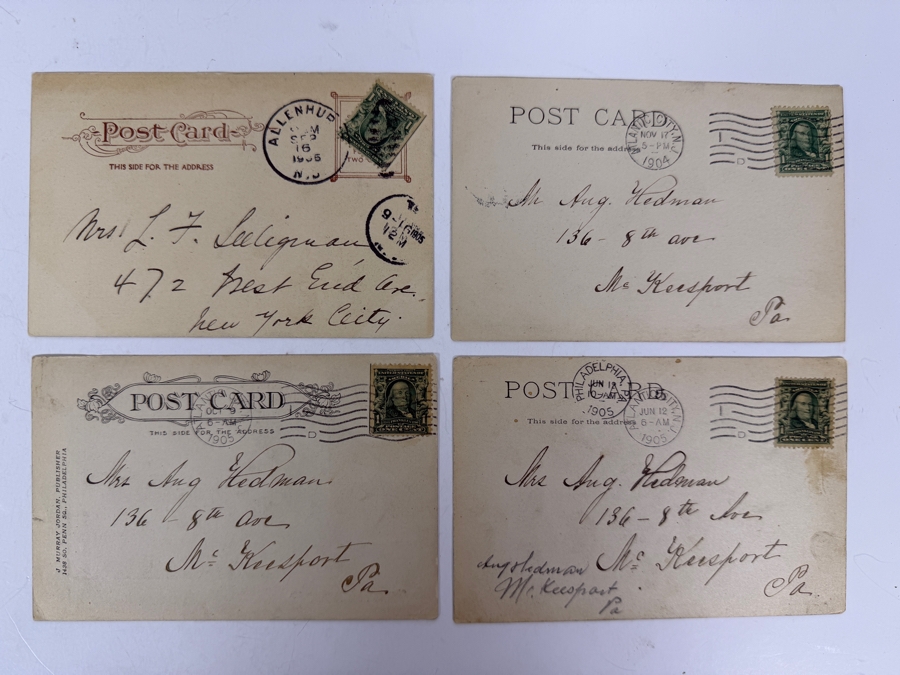 Post Card
THIS SIDE FOR THE ADDRESS
ALLENHUR
SEP
16
N.J
TWO
9-16 1905
12 M
Mrs. L. F. Seligman
472 West End Ave.
New York City.
POST CARD
This side for the address
ATLANTIC CITY, N.J.
NOV 17
5-PM
1904
Mr Aug. Hedman
136 - 8th ave
Mc Keesport
Pa
POST CARD
THIS SIDE FOR THE ADDRESS
OCT 9
6-AM
1905
D
J. MURRAY JORDAN, PUBLISHER
1438 SO. PENN SQ., PHILADELPHIA
Mrs Aug Hedman
136 - 8th ave
Mc Keesport
Pa.
POST CARD
This side for the address
PHILADELPHIA, PA.
JUN 12
10-AM
1905
ATLANTIC CITY, N.J.
JUN 12
6-AM
1905
D
Mrs Aug. Hedman
136 - 8th Ave
Mc Keesport
Pa.
Aug Hedman
Mc Keesport
Pa